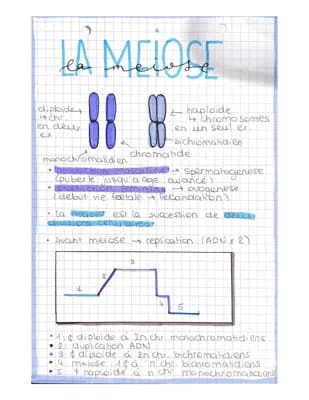 LA MEIOSE
la meiose
diploïde
↳ chr.
en deux
ex
haploïde
↳ chromosomes
en un seul ex.
bichromatidien
chromatide
monochromatidien
• production masculine → spermatogenèse
(puberté jusqu'à âge avancé)
• production féminine → ovogenèse
(début vie foetale → fécondation)
• La meiose est la succession de deux
divisions cellulaires
• Avant meiose → replication (ADN x 2)
1
2
3
4
5
• 1: ¢ diploïde à 2n chr. monochromatidiens
• 2: duplication ADN
• 3: ¢ diploïde à 2n chr. bichromatidiens
• 4: meiose 1 ¢ à n chr. bichromatidiens
• 5: ¢ haploïde à n chr. monochromatidiens